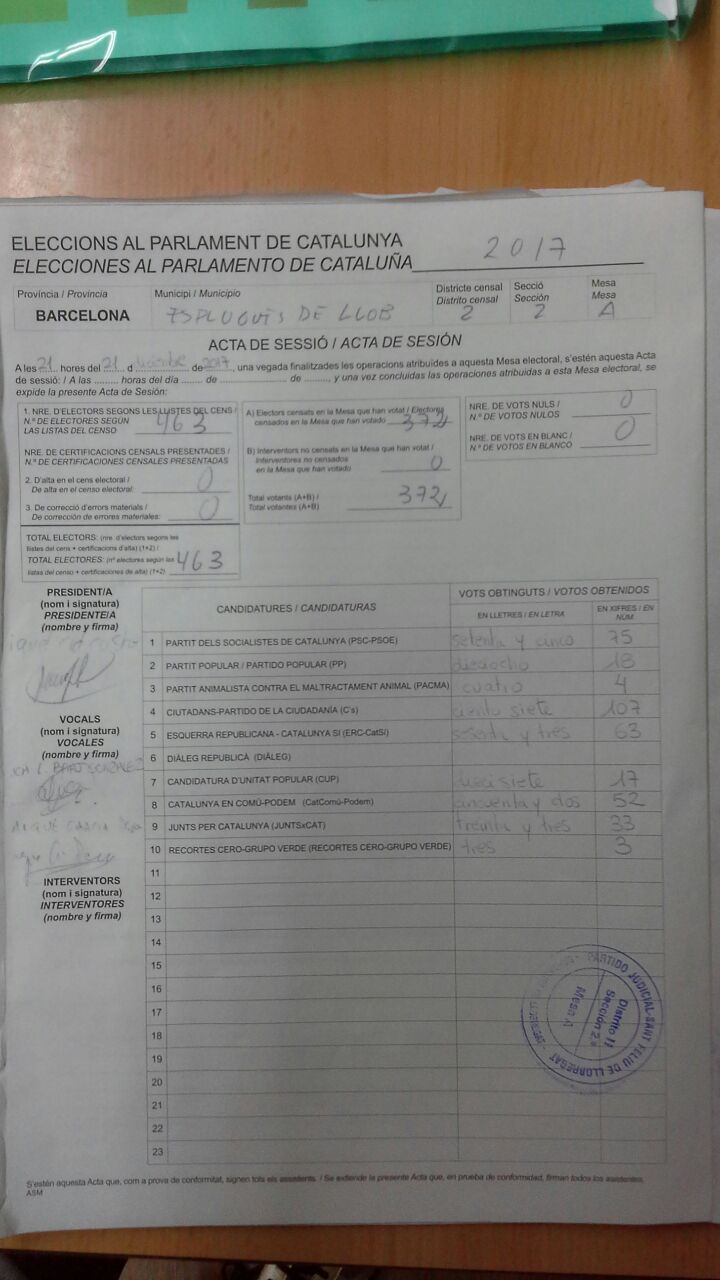 ELECCIONS AL PARLAMENT DE CATALUNYA
ELECCIONES AL PARLAMENTO DE CATALUÑA 2017
Província / Provincia
BARCELONA
Municipi / Municipio
ESPLUGUES DE LLOB
Districte censal
Distrito censal
2
Secció
Sección
2
Mesa
Mesa
A
ACTA DE SESSIÓ / ACTA DE SESIÓN
A les 21 hores del 21 d diciembre de 2017, una vegada finalitzades les operacions atribuïdes a aquesta Mesa electoral, s'estén aquesta Acta
de sessió: / A las ......... horas del día ........ de ........................ de ........, y una vez concluidas las operaciones atribuidas a esta Mesa electoral, se
expide la presente Acta de Sesión:
1. NRE. D'ELECTORS SEGONS LES LLISTES DEL CENS /
N.º DE ELECTORES SEGÚN
LAS LISTAS DEL CENSO 463
NRE. DE CERTIFICACIONS CENSALS PRESENTADES /
N.º DE CERTIFICACIONES CENSALES PRESENTADAS
2. D'alta en el cens electoral /
De alta en el censo electoral: 0
3. De correcció d'errors materials /
De corrección de errores materiales: 0
TOTAL ELECTORS: (nre. d'electors segons les
llistes del cens + certificacions d'alta) (1+2) /
TOTAL ELECTORES: (nº electores según las
listas del censo + certificaciones de alta) (1+2) 463
A) Electors censats en la Mesa que han votat / Electores
censados en la Mesa que han votado 372
B) Interventors no censats en la Mesa que han votat /
Interventores no censados
en la Mesa que han votado 0
Total votants (A+B) /
Total votantes (A+B) 372
NRE. DE VOTS NULS /
N.º DE VOTOS NULOS 0
NRE. DE VOTS EN BLANC /
N.º DE VOTOS EN BLANCO 0
PRESIDENT/A
(nom i signatura)
PRESIDENTE/A
(nombre y firma)
VOCALS
(nom i signatura)
VOCALES
(nombre y firma)
INTERVENTORS
(nom i signatura)
INTERVENTORES
(nombre y firma)
CANDIDATURES / CANDIDATURAS
VOTS OBTINGUTS / VOTOS OBTENIDOS
EN LLETRES / EN LETRA
EN XIFRES / EN NÚM
1 PARTIT DELS SOCIALISTES DE CATALUNYA (PSC-PSOE) setenta y cinco 75
2 PARTIT POPULAR / PARTIDO POPULAR (PP) dieciocho 18
3 PARTIT ANIMALISTA CONTRA EL MALTRACTAMENT ANIMAL (PACMA) cuatro 4
4 CIUTADANS-PARTIDO DE LA CIUDADANÍA (C's) ciento siete 107
5 ESQUERRA REPUBLICANA - CATALUNYA SÍ (ERC-CatSí) sesenta y tres 63
6 DIÀLEG REPUBLICÀ (DIÀLEG)
7 CANDIDATURA D'UNITAT POPULAR (CUP) dieci siete 17
8 CATALUNYA EN COMÚ-PODEM (CatComú-Podem) cincuenta y dos 52
9 JUNTS PER CATALUNYA (JUNTSxCAT) treinta y tres 33
10 RECORTES CERO-GRUPO VERDE (RECORTES CERO-GRUPO VERDE) tres 3
11
12
13
14
15
16
17
18
19
20
21
22
23
PARTIDO JUDICIAL-SANT FELIU DE LLOBREGAT
Distrito II
Sección 2.ª
Mesa A
S'estén aquesta Acta que, com a prova de conformitat, signen tots els assistents. / Se extiende la presente Acta que, en prueba de conformidad, firman todos los asistentes.
ASM